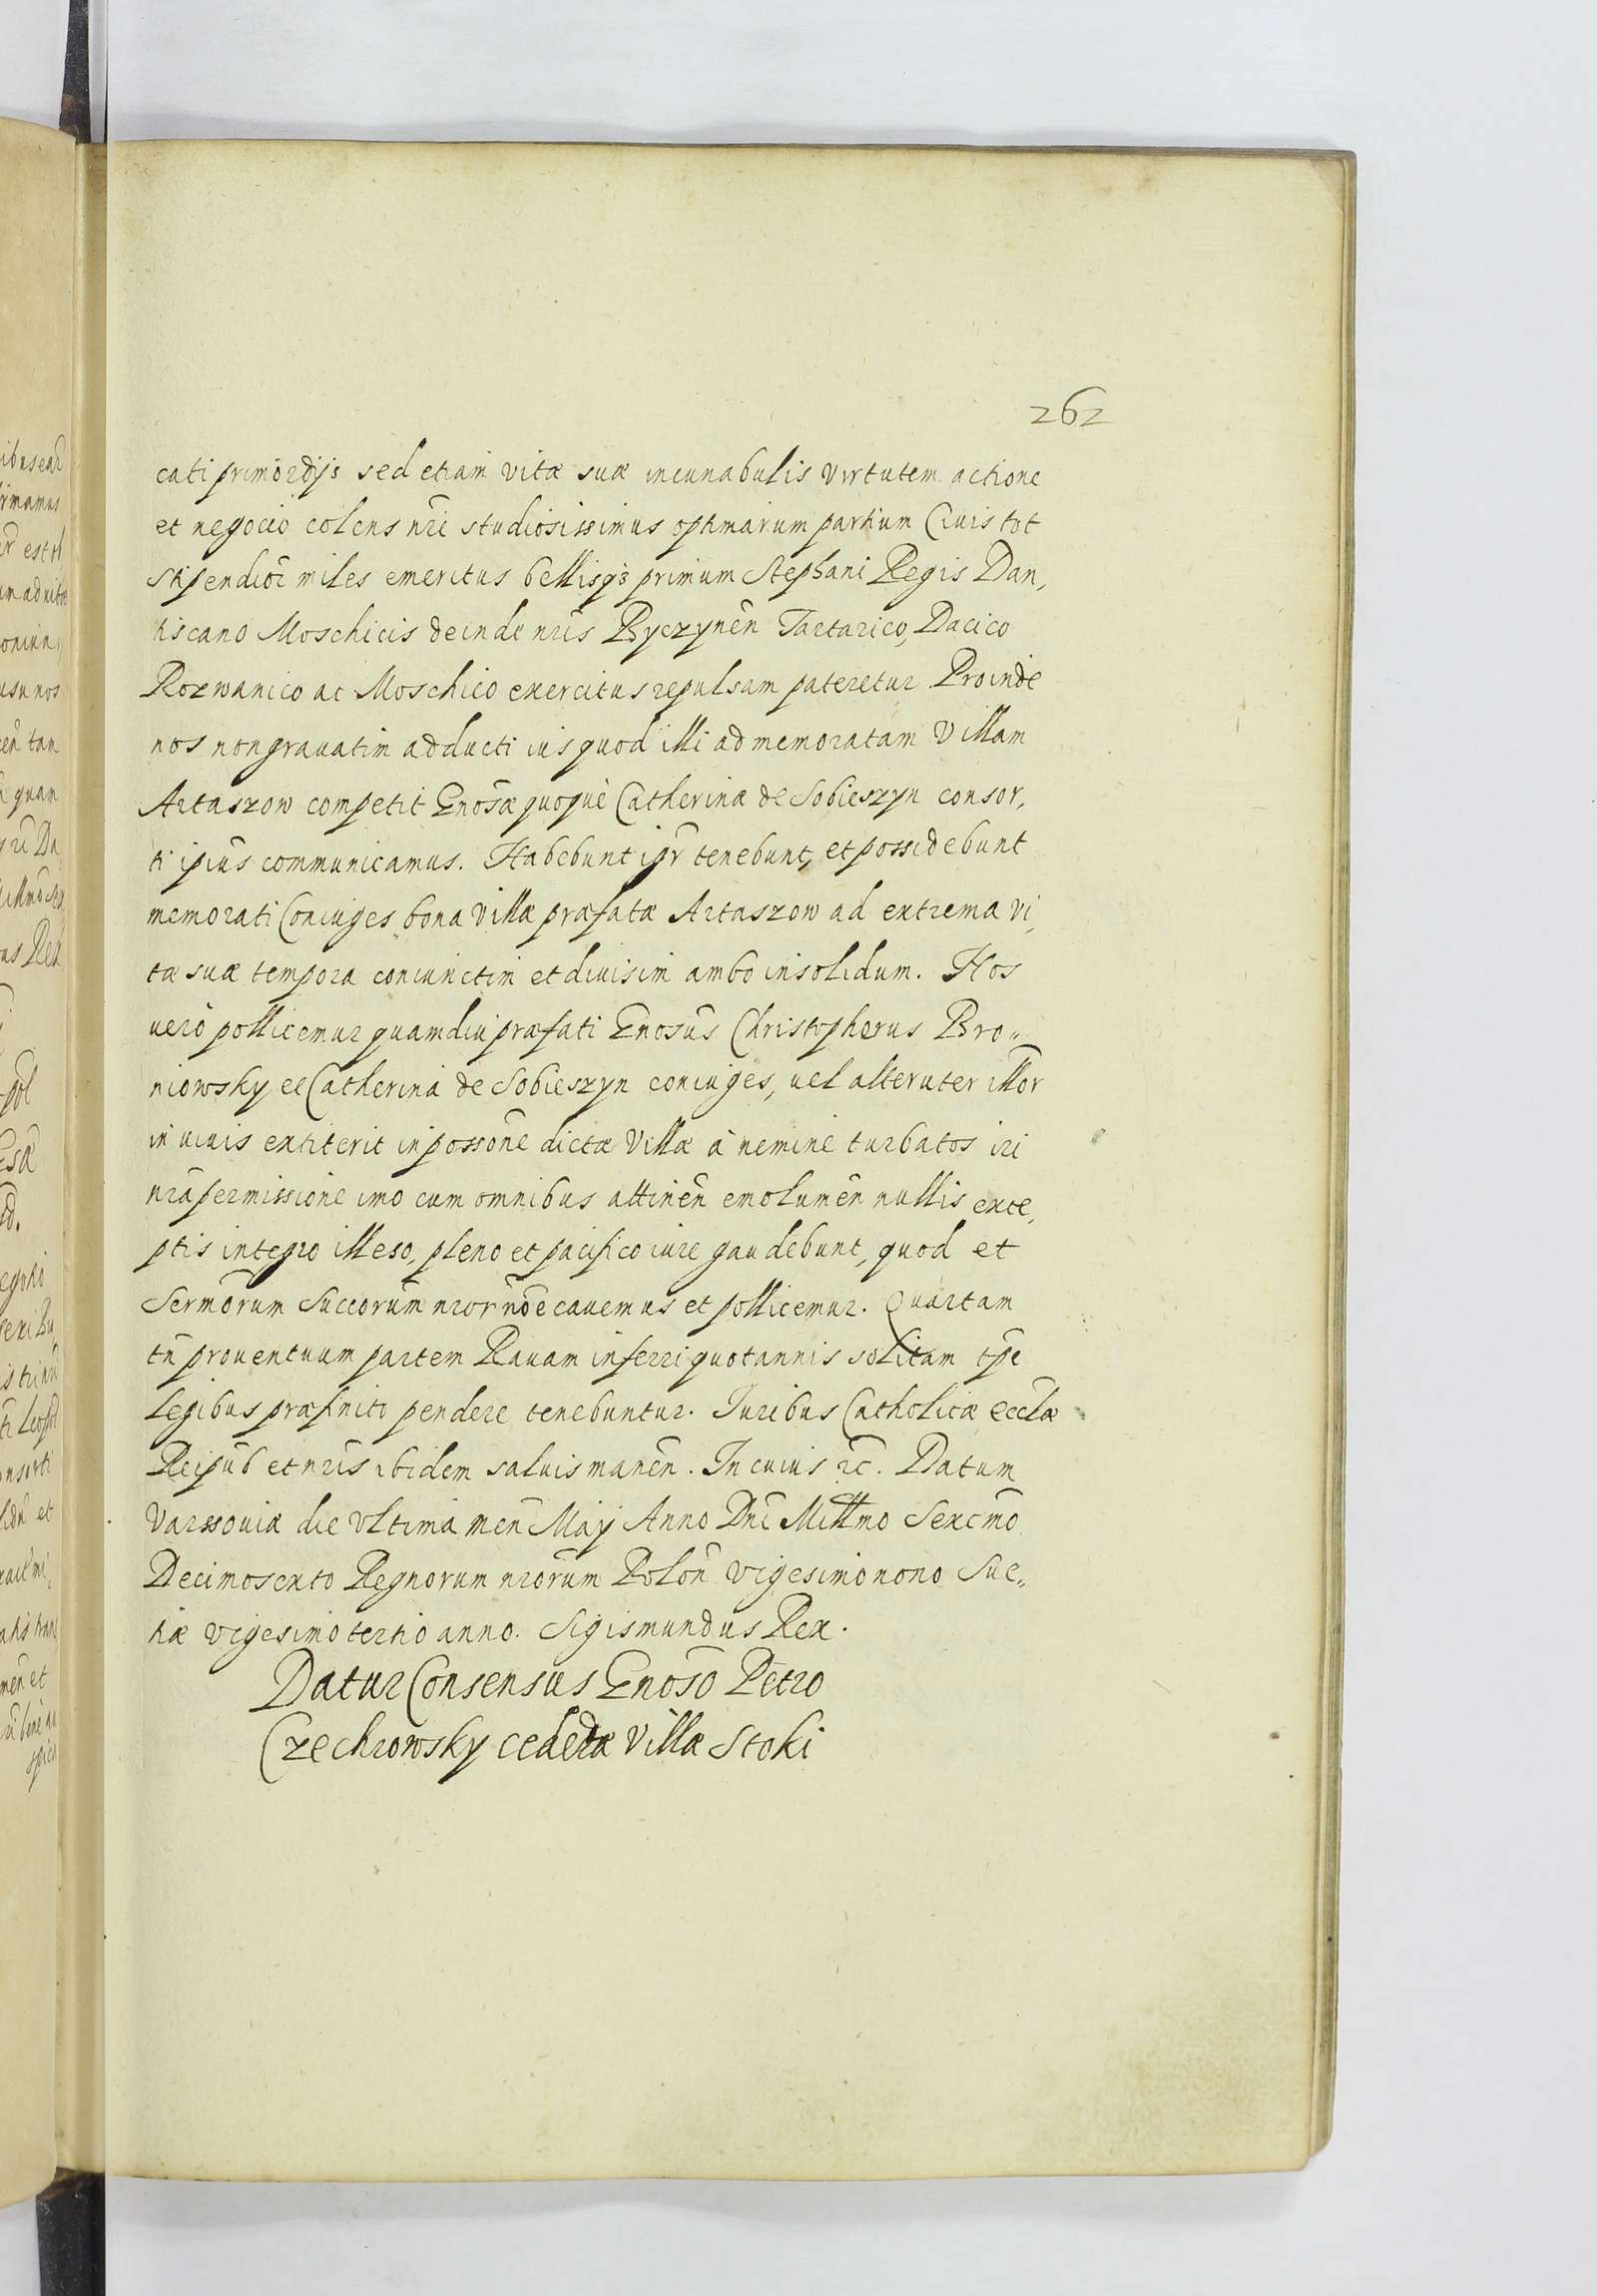 262
cati primordijs sed etiam vitæ suæ incunabulis virtutem actione
et negocio colens nři studiosissimus optimarum partium Civis tot
stipendior̃ miles emeritus bellisqꝫ primum Stephani Regis Dan,
tiscano Moschicis deinde nřis Byczynen̄ Tartarico, Dacico
Rozwanico ac Moschico exercitus repulsam pateretur Proinde
nos non gravatim adducti ius quod illi ad memoratam Villam
Artaszow competit Gnōsæ quoque Catherinæ de Sobieszyn consor,
ti ipīus communicamus. Habebunt igr̄ tenebunt, et possidebunt
memorati Coniuges bona Villæ præfatæ Artaszow ad extrema vi,
tæ suæ tempora coniunctim et divisim ambo insolidum. Hos
uerò pollicemur quamdiu præfati Gnōsus Christopherus Bro„
niowsky et Catherina de Sobieszyn coniuges, uel alteruter illor̄
in uiuis extiterit in possōne dictæ Villæ à nemine turbatos iri
nr̄a permissione imo cum omnibus attinen̄ emolumen̄ nullis exce,
ptis integro illeso, pleno et pacifico iure gaudebunt, quod et
Sermōrum Succorum̄ nror̄ nōe cauemus et pollicemur. Quartam
tn̄ prouentuum partem Rauam inferri quotannis solitam tp̄e
legibus præfinito pendere tenebuntur. Iuribus Catholicæ eccl̄æ
Reipub̄ et nr̄is ibidem saluis manen̄. In cuius rc̄. Datum
Varssouiæ die vltima men̄ Maÿ Anno Dn̄i Millmo Sexcm̄o
Decimosexto Regnorum nrōrum Polon̄ vigesimo nono Sue„
tiæ vigesimo tertio anno. Sigismundus Rex.
Datur Consensus Gnōso Petro
Czechrowsky cedendæ Villæ Stoki